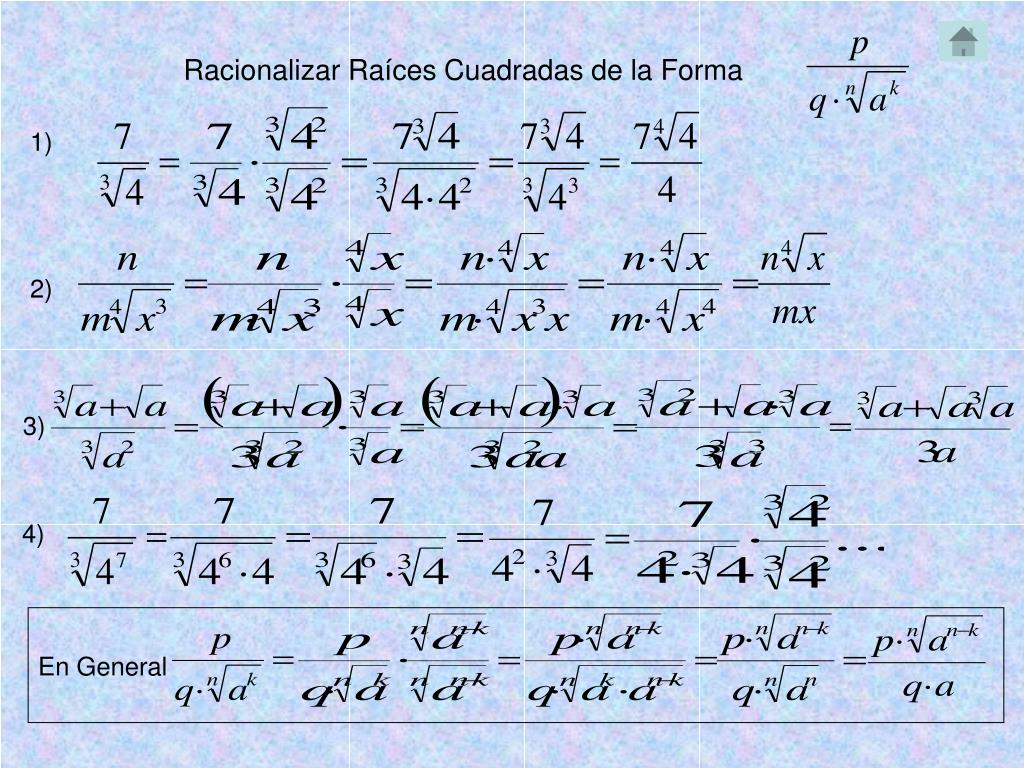 Racionalizar Raíces Cuadradas de la Forma $\frac{p}{q \cdot \sqrt[n]{a^k}}$
1) $\frac{7}{\sqrt[3]{4}} = \frac{7}{\sqrt[3]{4}} \cdot \frac{\sqrt[3]{4^2}}{\sqrt[3]{4^2}} = \frac{7\sqrt[3]{4}}{\sqrt[3]{4 \cdot 4^2}} = \frac{7\sqrt[3]{4}}{\sqrt[3]{4^3}} = \frac{7\sqrt[4]{4}}{4}$
2) $\frac{n}{m\sqrt[4]{x^3}} = \frac{n}{m\sqrt[4]{x^3}} \cdot \frac{\sqrt[4]{x}}{\sqrt[4]{x}} = \frac{n \cdot \sqrt[4]{x}}{m \cdot \sqrt[4]{x^3 x}} = \frac{n \cdot \sqrt[4]{x}}{m \cdot \sqrt[4]{x^4}} = \frac{n\sqrt[4]{x}}{mx}$
3) $\frac{\sqrt[3]{a}+\sqrt{a}}{\sqrt[3]{a^2}} = \frac{(\sqrt[3]{a}+\sqrt{a})}{3\sqrt[3]{a^2}} \cdot \frac{\sqrt[3]{a}}{\sqrt[3]{a}} = \frac{(\sqrt[3]{a}+\sqrt{a}) \cdot \sqrt[3]{a}}{3\sqrt[3]{a^2 a}} = \frac{\sqrt[3]{a^2}+\sqrt{a} \cdot \sqrt[3]{a}}{3\sqrt[3]{a^3}} = \frac{\sqrt[3]{a}+\sqrt{a}\sqrt[3]{a}}{3a}$
4) $\frac{7}{\sqrt[3]{4^7}} = \frac{7}{\sqrt[3]{4^6 \cdot 4}} = \frac{7}{\sqrt[3]{4^6} \cdot \sqrt[3]{4}} = \frac{7}{4^2 \cdot \sqrt[3]{4}} = \frac{7}{4^2 \cdot \sqrt[3]{4}} \cdot \frac{\sqrt[3]{4^2}}{\sqrt[3]{4^2}} \cdots$
En General $\frac{p}{q \cdot \sqrt[n]{a^k}} = \frac{p}{q \cdot \sqrt[n]{a^k}} \cdot \frac{\sqrt[n]{a^{n-k}}}{\sqrt[n]{a^{n-k}}} = \frac{p \cdot \sqrt[n]{a^{n-k}}}{q \cdot \sqrt[n]{a^k \cdot a^{n-k}}} = \frac{p \cdot \sqrt[n]{a^{n-k}}}{q \cdot \sqrt[n]{a^n}} = \frac{p \cdot \sqrt[n]{a^{n-k}}}{q \cdot a}$